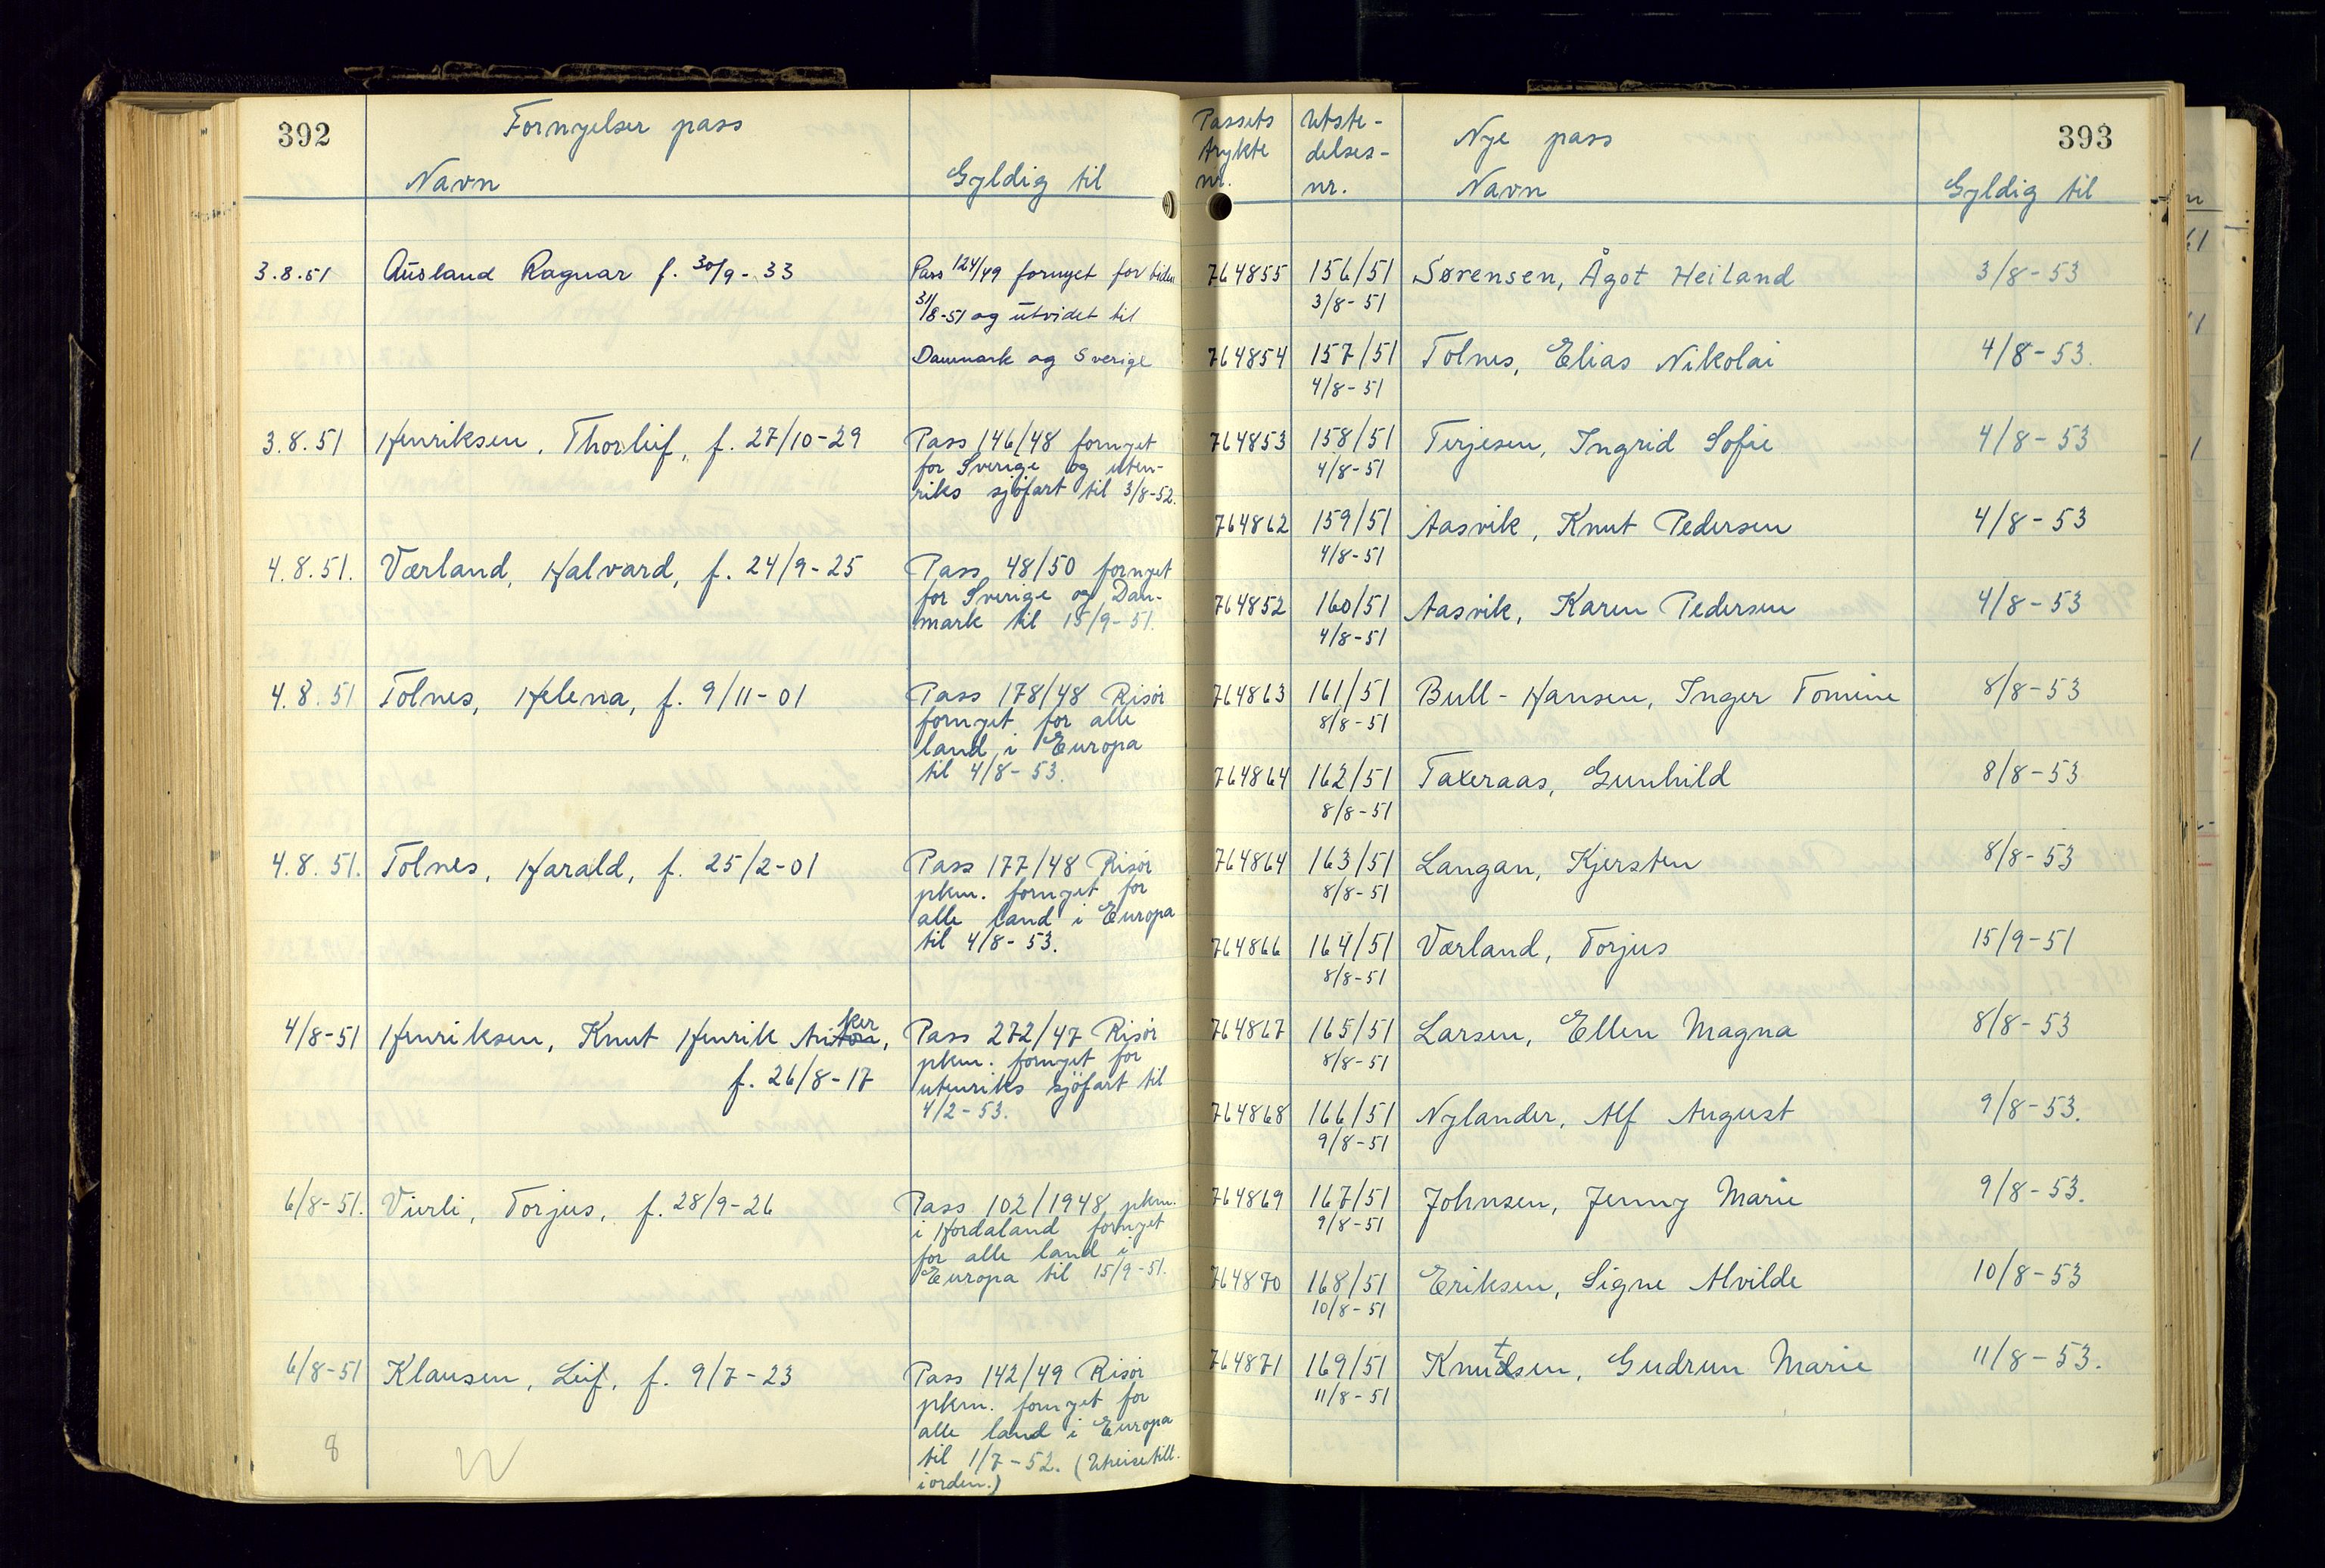 392
Fornyelser pass
Navn
Gyldig til
3.8.51 Ausland Ragnar f. 30/9-33 Pass 124/49 fornyet for tiden
31/8-51 og utvidet til
Danmark og Sverige
3.8.51 Henriksen, Thorleif, f. 27/10-29 Pass 146/48 fornyet
for Sverige og uten-
riks sjøfart til 3/8-52.
4.8.51. Værland, Halvard, f. 24/9-25 Pass 48/50 fornyet
for Sverige og Dan-
mark til 15/9-51.
4.8.51 Tolnes, Helena, f. 9/11-01 Pass 178/48 Risør
fornyet for alle
land i Europa
til 4/8-53.
4.8.51. Tolnes, Harald, f. 25/2-01 Pass 177/48 Risør
pkm. fornyet for
alle land i Europa
til 4/8-53.
ker
4/8-51 Henriksen, Knut Henrik Anton, Pass 272/47 Risør
f. 26/8-17 pkm. fornyet for
utenriks sjøfart til
4/2-53.
6/8-51. Vierli, Torjus, f. 28/9-26 Pass 102/1948, pkm.
i Hordaland fornyet
for alle land i
Europa til 15/9-51.
6/8-51 Klausen, Leif, f. 9/7-23 Pass 142/49 Risør
pkm. fornyet for
alle land i Europa
til 1/7-52. (Utreisetill.
iorden.)
8
393
Passets
trykte
nr.
Utste-
delses-
nr.
Nye pass
Navn
Gyldig til
764855 156/51 Sørensen, Ågot Heiland 3/8-53
3/8-51
764854 157/51 Tolnes, Elias Nikolai 4/8-53.
4/8-51
764853 158/51 Terjesen, Ingrid Sofie 4/8-53
4/8-51
764862 159/51 Aasvik, Knut Pedersen 4/8-53
4/8-51
764852 160/51 Aasvik, Karen Pedersen 4/8-53
4/8-51
764863 161/51 Bull-Hansen, Inger Tomine 8/8-53
8/8-51
764864 162/51 Taxeraas, Gunhild 8/8-53
8/8-51
764864 163/51 Langan, Kjersten 8/8-53
8/8-51
764866 164/51 Værland, Torjus 15/9-51
8/8-51
764867 165/51 Larsen, Ellen Magna 8/8-53
8/8-51
764868 166/51 Nylander, Alf August 9/8-53.
9/8-51
764869 167/51 Johnsen, Jenny Marie 9/8-53.
9/8-51
764870 168/51 Eriksen, Signe Alvilde 10/8-53
10/8-51
764871 169/51 Knutsen, Gudrun Marie 11/8-53.
11/8-51